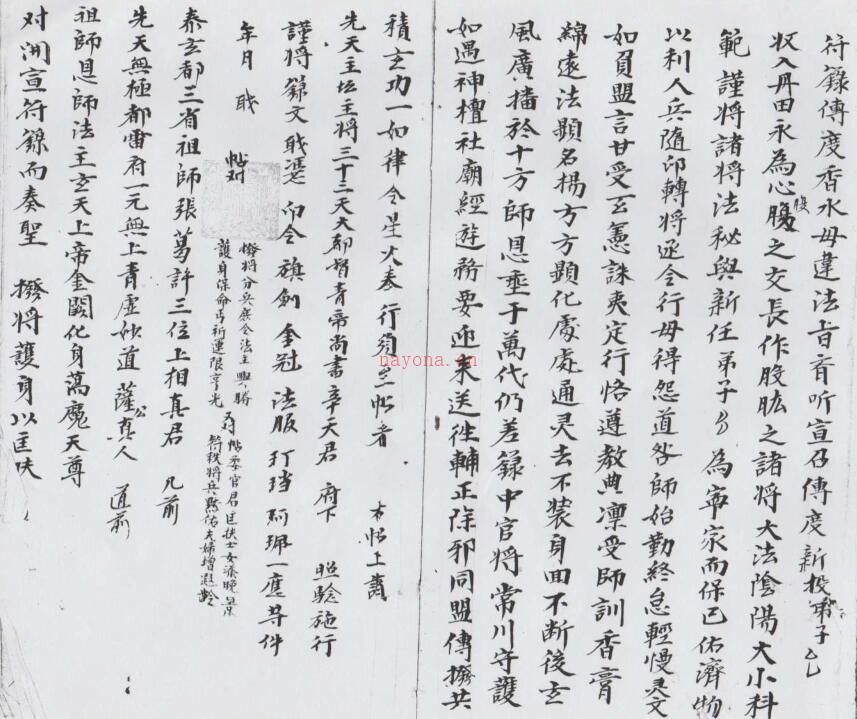 符籙傳度香水毋違法旨音听宣召傳度新投弟子
收入丹田永為心腹之交長作股肱之諸將大法陰陽大小科
範謹將諸將法秘與新任弟子 為寧家而保己佑濟物
以利人兵隨印轉將逐令行毋得怨道咎師始勤終怠輕慢灵文
如負盟言甘受玄憲誅夷定行恪遵教典凜受師訓香膏
綿遠法顯名揚方方顯化處處通灵去不装身回不断後玄
風廣播於十方師恩垂于萬代仍差籙中官將常川守護
如遇神檀社廟經遊務要迎來送往輔正除邪同盟傳撥共
積玄功一如律令星火奉行須至帖者
右帖上請
先天主坛主將三十三天大都督青帝尚書辛天君 府下 照驗施行
謹將籙文戝憑印令旗劍奎冠法服 珮一應等件
年 月 戝 帖对
撥將分兵廣令法主興勝
護身保命 祈運限亨光
帖委官君匡扶士女
符秩將兵默佑夫婦增遐齡
泰玄都三省祖師張葛許三位上相真君 几前
先天無極都雷府一元無上青虛妙道薩公真人 道前
祖師恩師法主玄天上帝金闕化身蕩魔天尊
对開宣符籙而奏聖 撥將護身以匡扶
nayona.cn